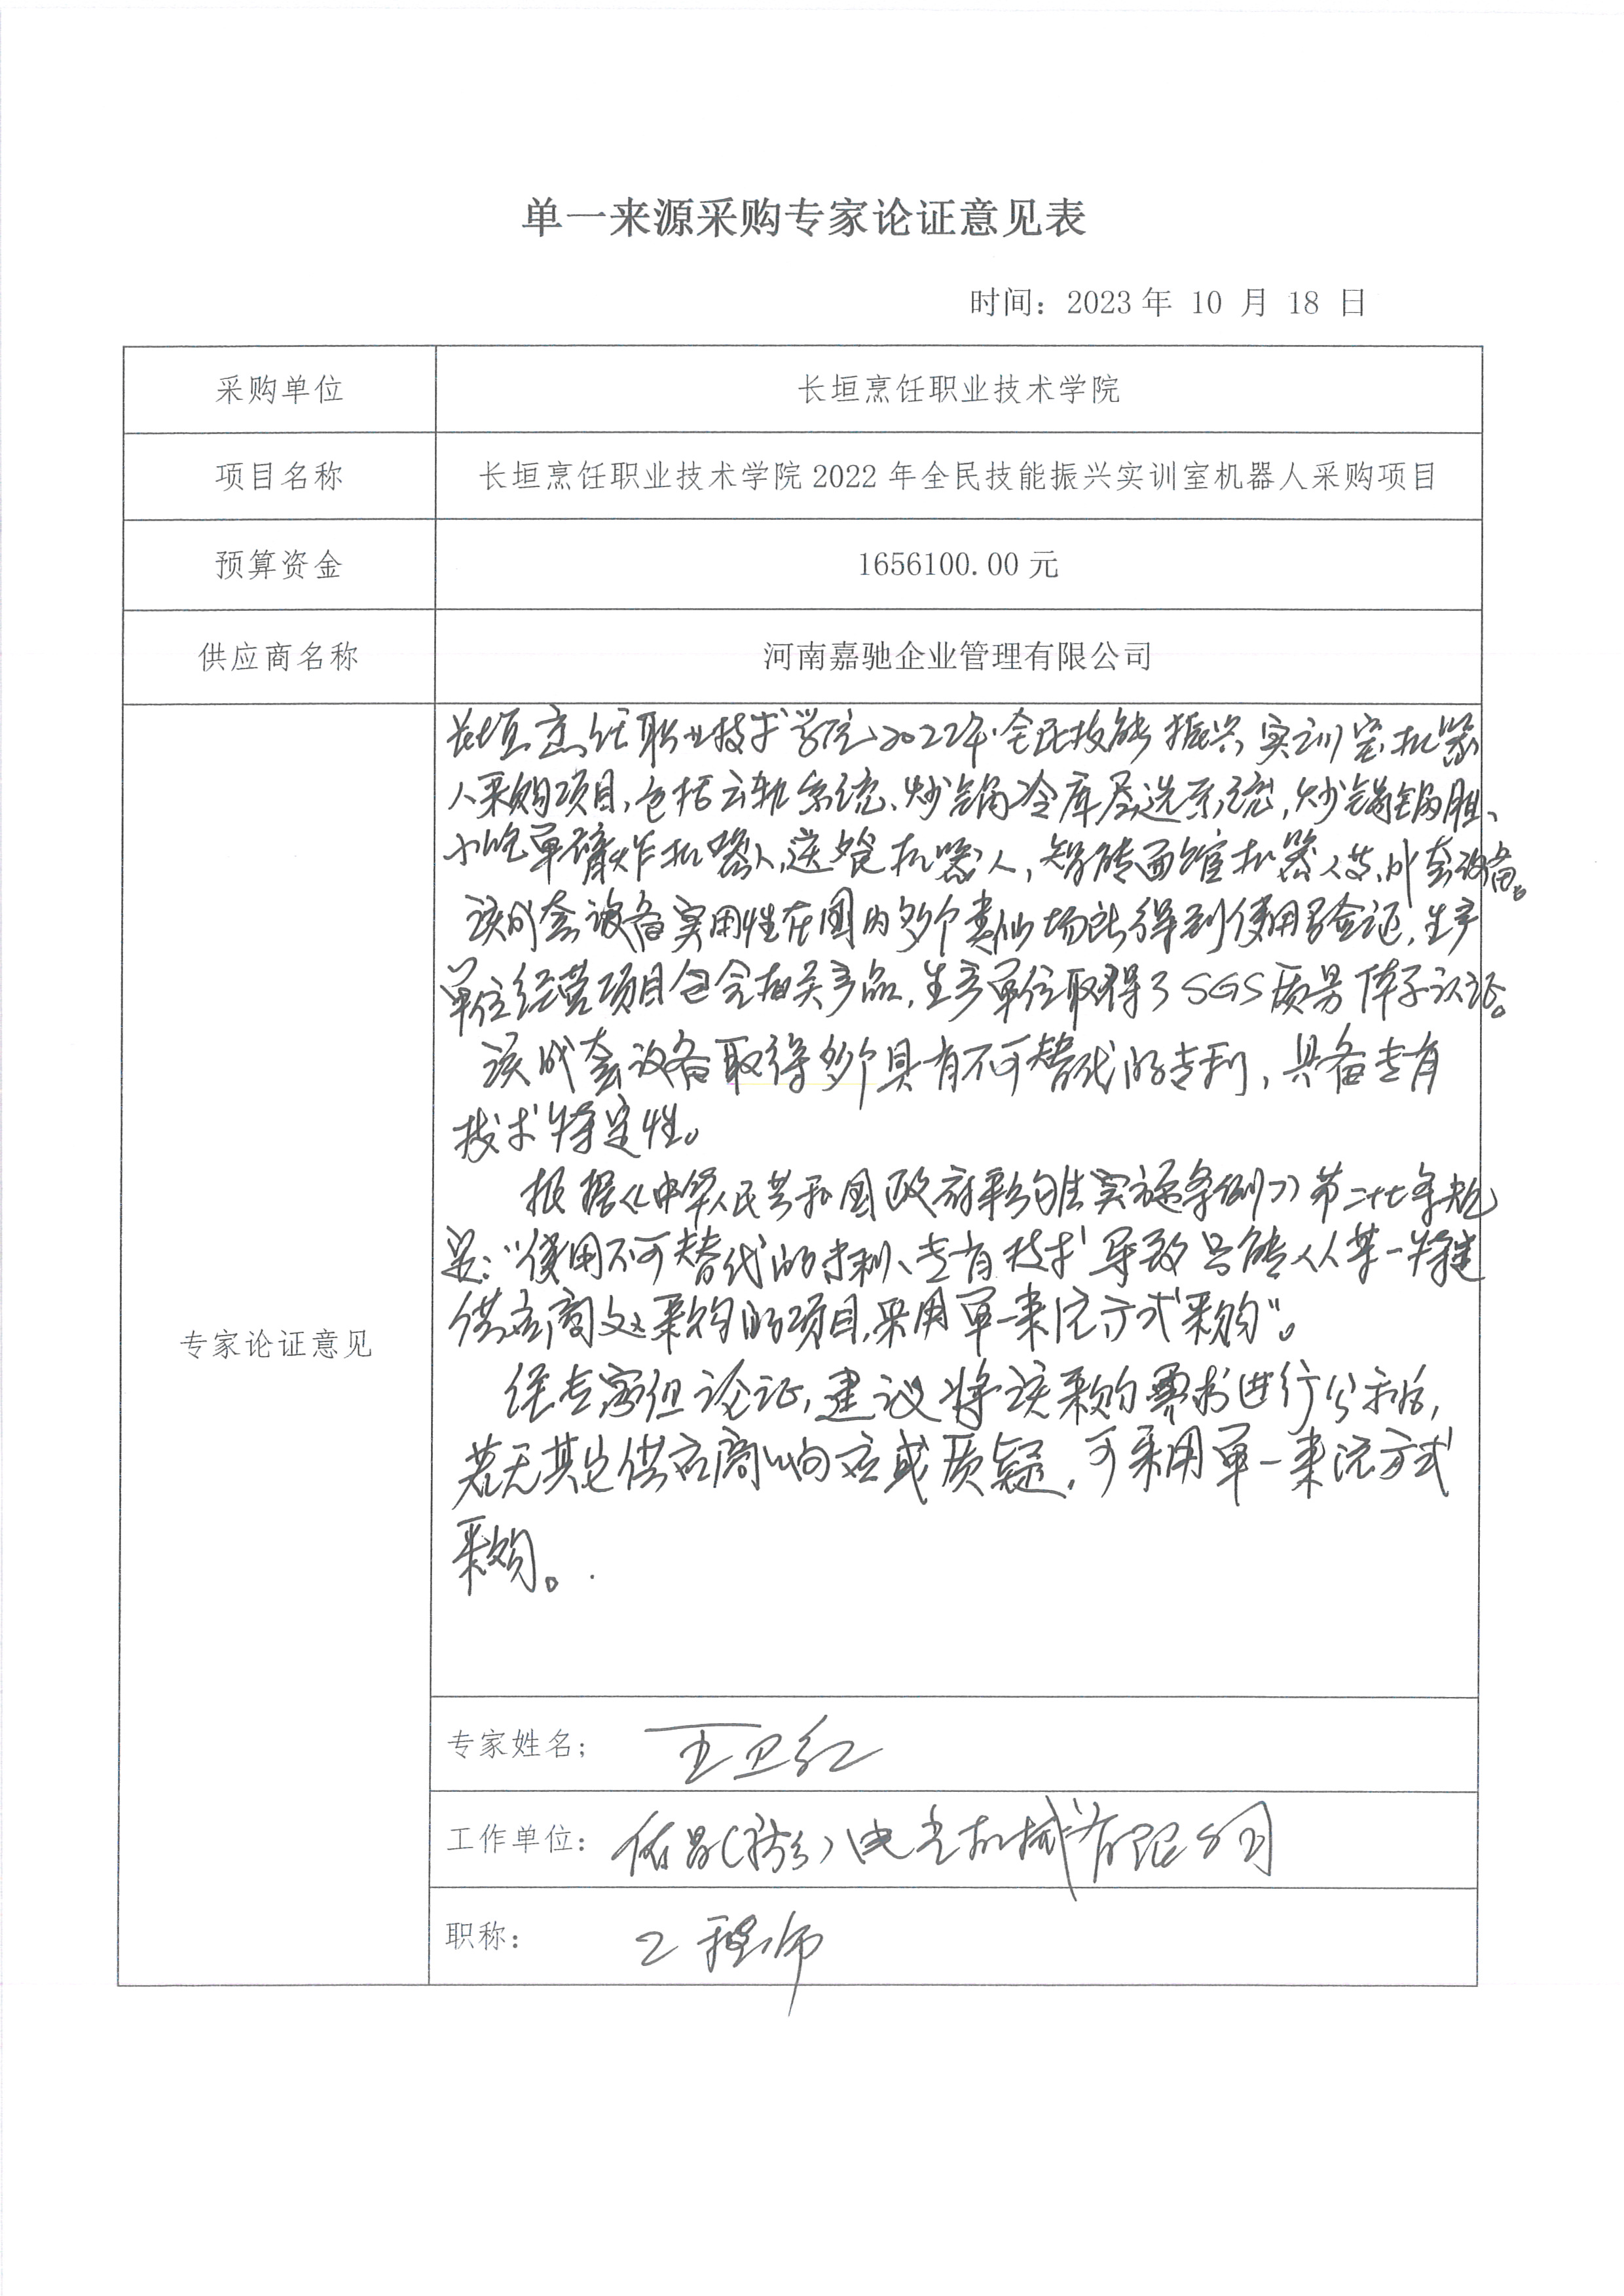 单一来源采购专家论证意见表
时间：2023年 10 月 18 日
采购单位
长垣烹饪职业技术学院
项目名称
长垣烹饪职业技术学院2022年全民技能振兴实训室机器人采购项目
预算资金
1656100.00元
供应商名称
河南嘉驰企业管理有限公司
专家论证意见
长垣烹饪职业技术学院2022年全民技能振兴实训室机器
人采购项目，包括云轨系统、炒锅冷库选系统，炒锅锅胆、
小吃单臂炸机器人，送餐机器人，智能面馆机器人等成套设备。
该成套设备实用性在国内多个类似场所得到使用验证，生产
单位经营项目包含相关产品，生产单位取得了SGS质量体系认证。
该成套设备取得多个具有不可替代的专利，具备专有
技术特定性。
根据《中华人民共和国政府采购法实施条例》第二十七条规
定：“使用不可替代的专利、专有技术导致只能从某一特定
供应商处采购的项目，采用单一来源方式采购”。
经专家组论证，建议将该采购需求进行公示后，
若无其它供应商响应或质疑，可采用单一来源方式
采购。
专家姓名；
王卫红
工作单位：
佑昌（）电光机械有限公司
职称：
工程师